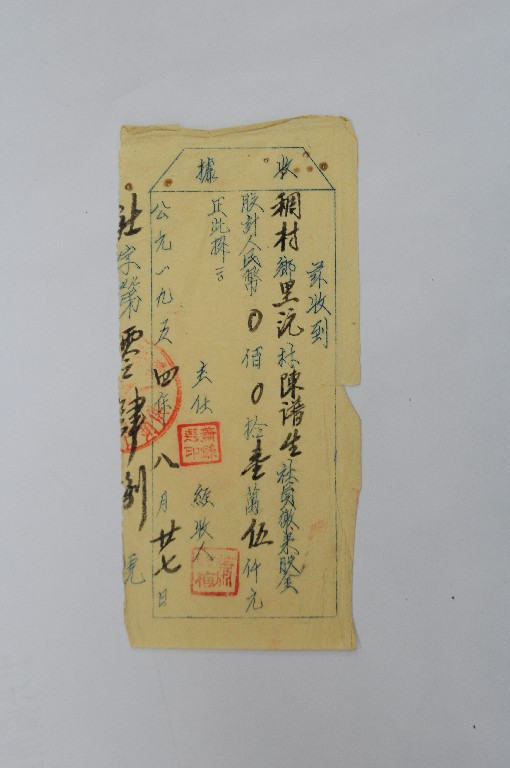 收據
茲收到
稠村鄉里沅社陳譜生社員繳來股金
股計人民幣0佰0拾壹萬伍仟元
正此據
主任 經收人
公元一九五四年八月廿七日
社字第零肆 號